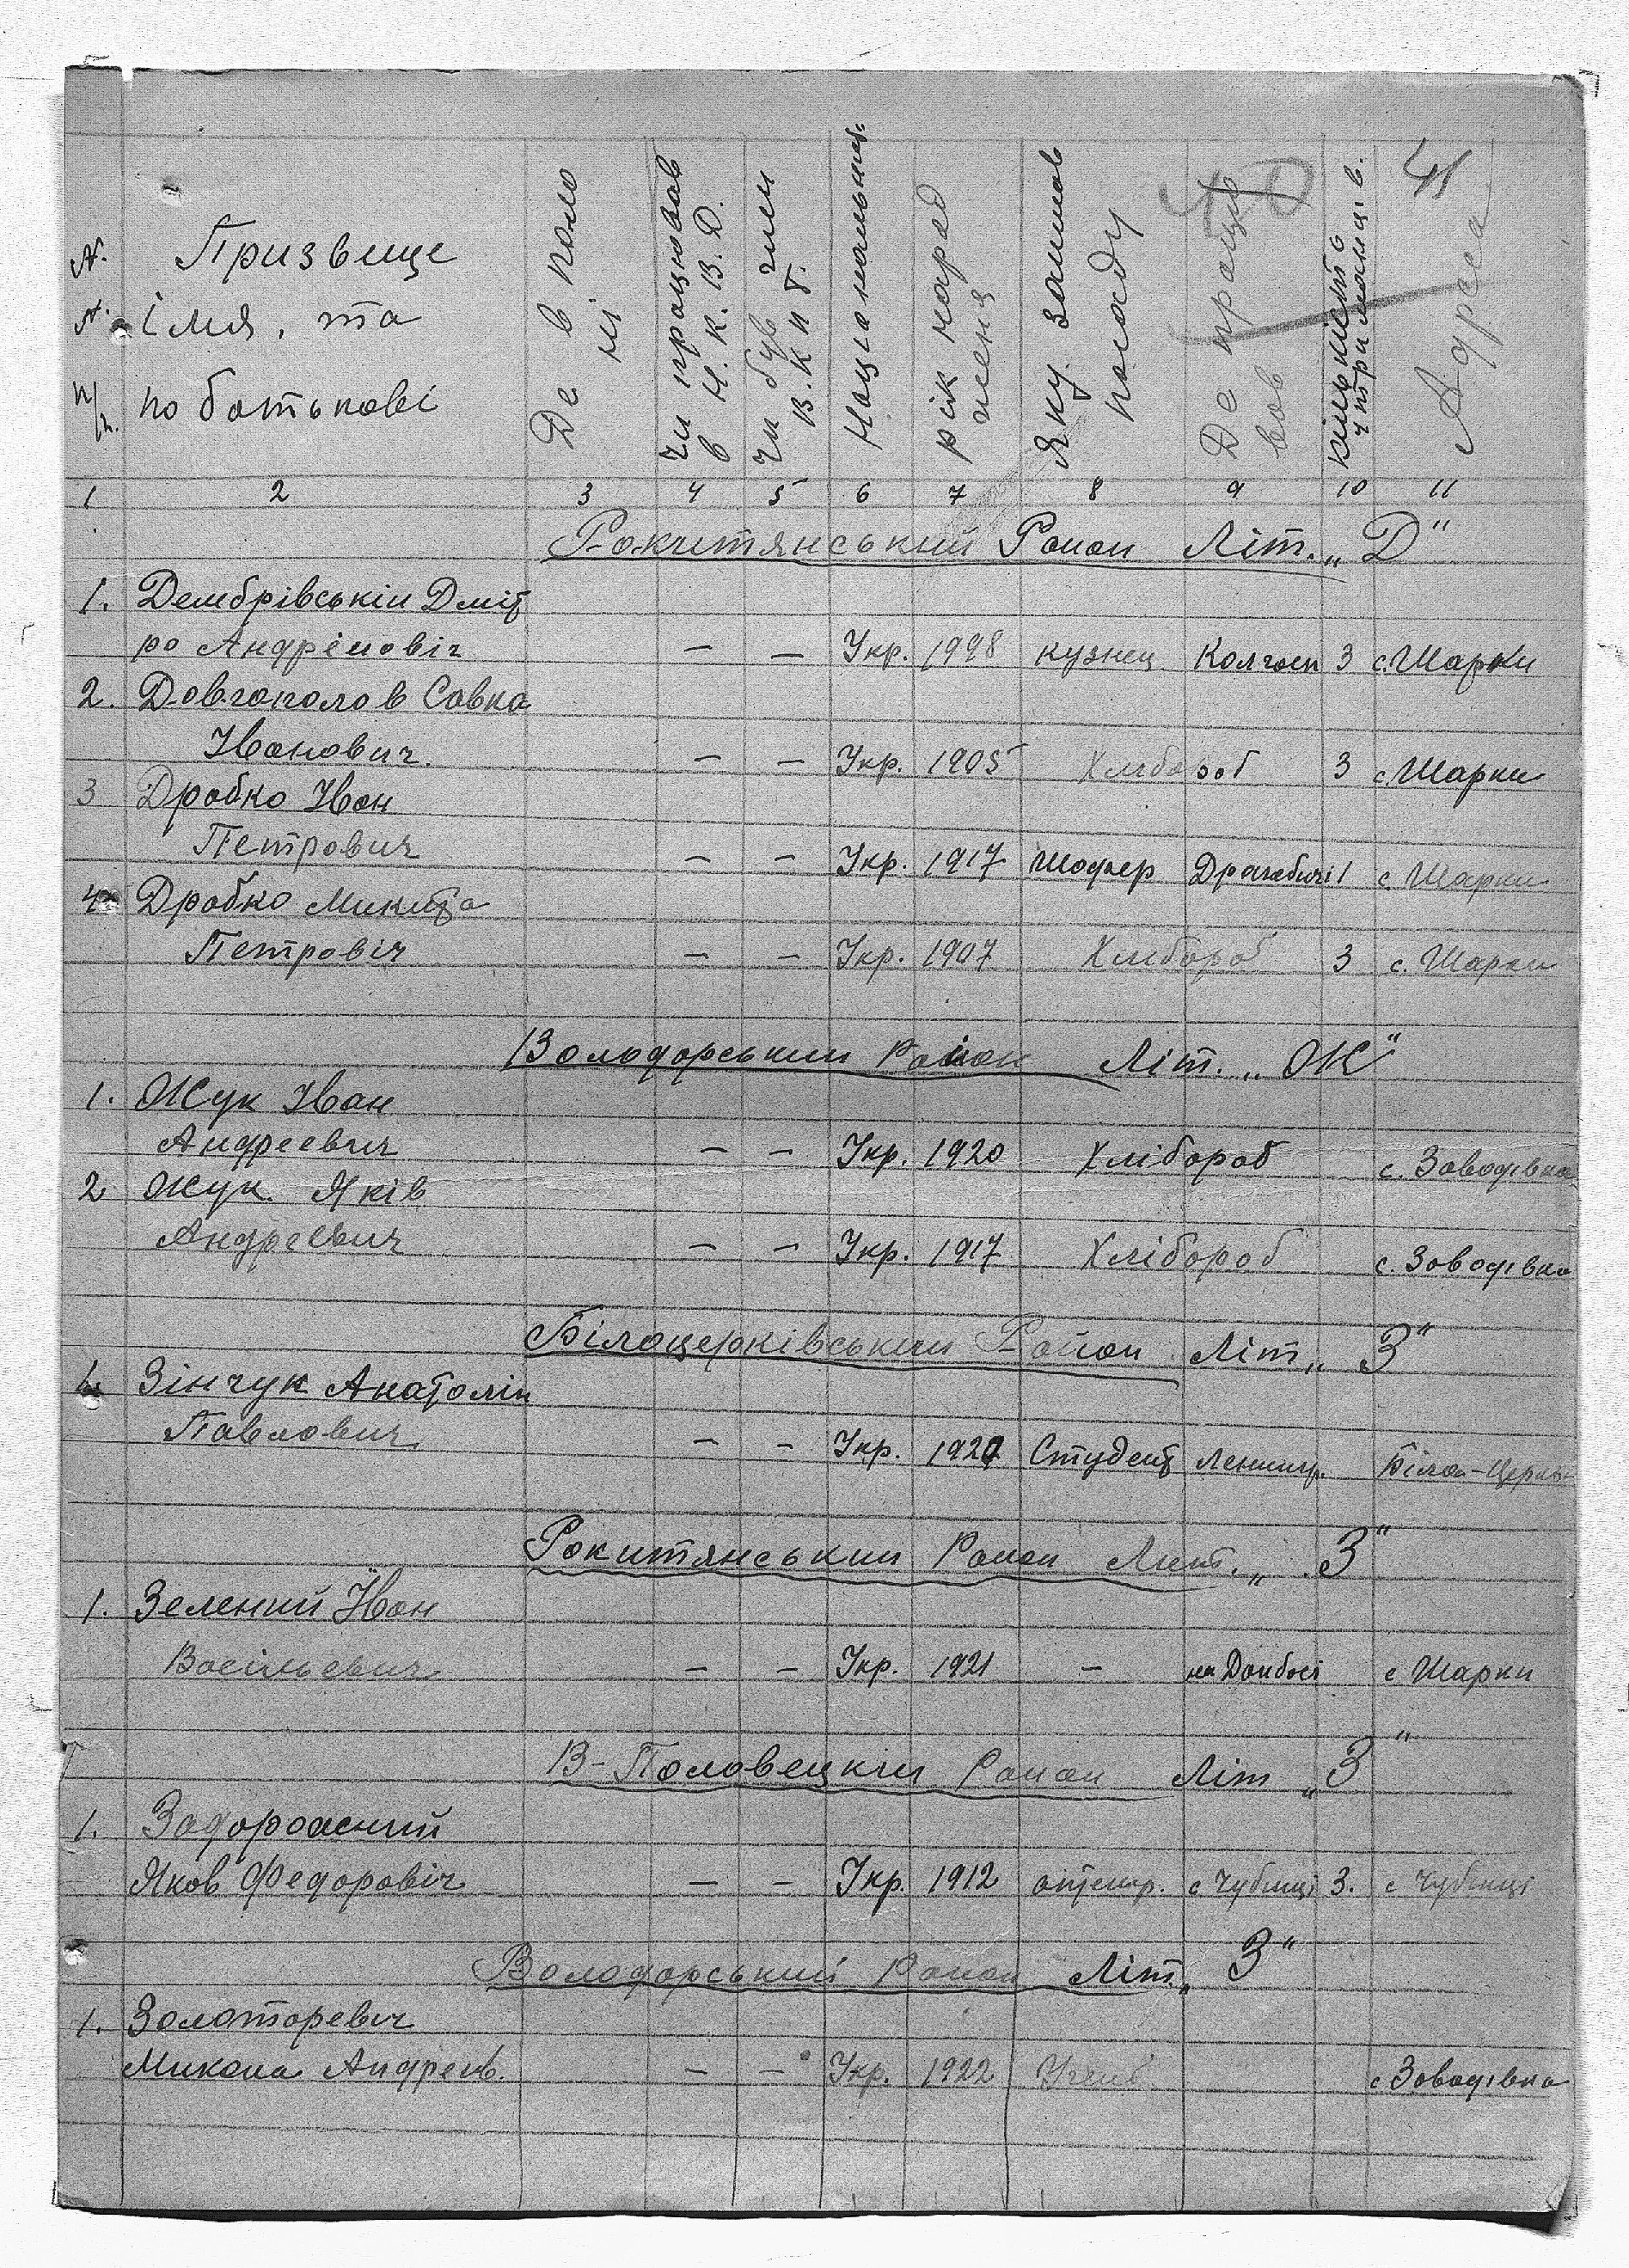 41
№ № п/п.
Призвище
імя, та
по батькові
Де в поло ні
чи працював в Н.К.В.Д.
чи був член В.К.П.б.
Національність
рік народ ження
Яку займав посаду
Де працю вав
кількість утриманців.
Адреса
1 2 3 4 5 6 7 8 9 10 11
Рокитянський Район Літ. „Д"
1. Дембрівській Дміт
ро Андрійовіч — — Укр. 1998 кузнец Колгосп 3 с. Шарки
2. Довгополов Савка
Іванович. — — Укр. 1905 Хлібороб 3 с. Шарки
3 Дробко Іван
Петрович — — Укр. 1917 Шофер 1 с. Шарки
4. Дробко Микита
Петровіч — — Укр. 1907 Хлібороб 3 с. Шарки
Володорський Район Літ. „Ж"
1. Жук Іван
Андреевич — — Укр. 1920 Хлібороб с. Заводівка
2 Жук. Яків
Андреевич — — Укр. 1917 Хлібороб с. Заводівка
Білоцерківський Район Літ „З"
1. Зінчук Анатолій
Павлович — — Укр. 1927 Студент Ленингр. Біла-Церьк
Рокитянський Район Лит. „З"
1. Зелений Іван
Васільевич — — Укр. 1921 — на Донбасі с Шарки
В-Половецкій Район Літ „З"
1. Задорожний
Яков Федоровіч — — Укр. 1912 с Чубинці 3. с Чубинці
Володорський Район Літ. „З"
1. Золоторевич
Микола Андреев. — — Укр. 1922 Учив. с Заводівка